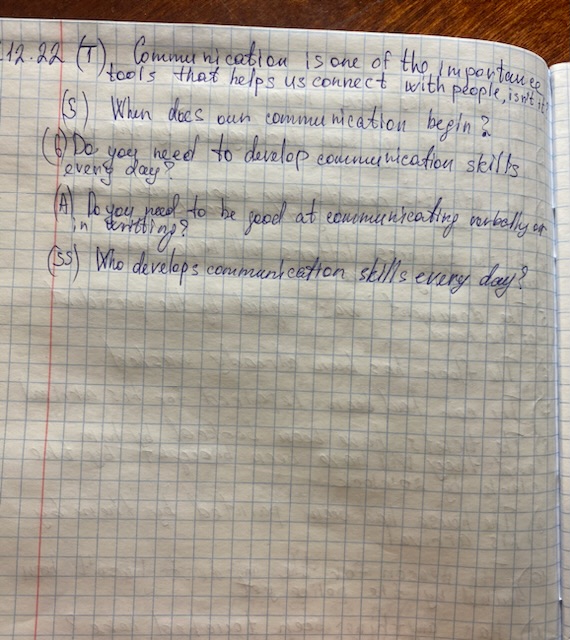 12.22 (T) Communication is one of the importance
tools that helps us connect with people, isn't it
(S) When does our communication begin?
(G) Do you need to develop communication skills
every day?
(A) Do you need to be good at communicating verbally or
in writting?
(SS) Who develops communication skills every day?